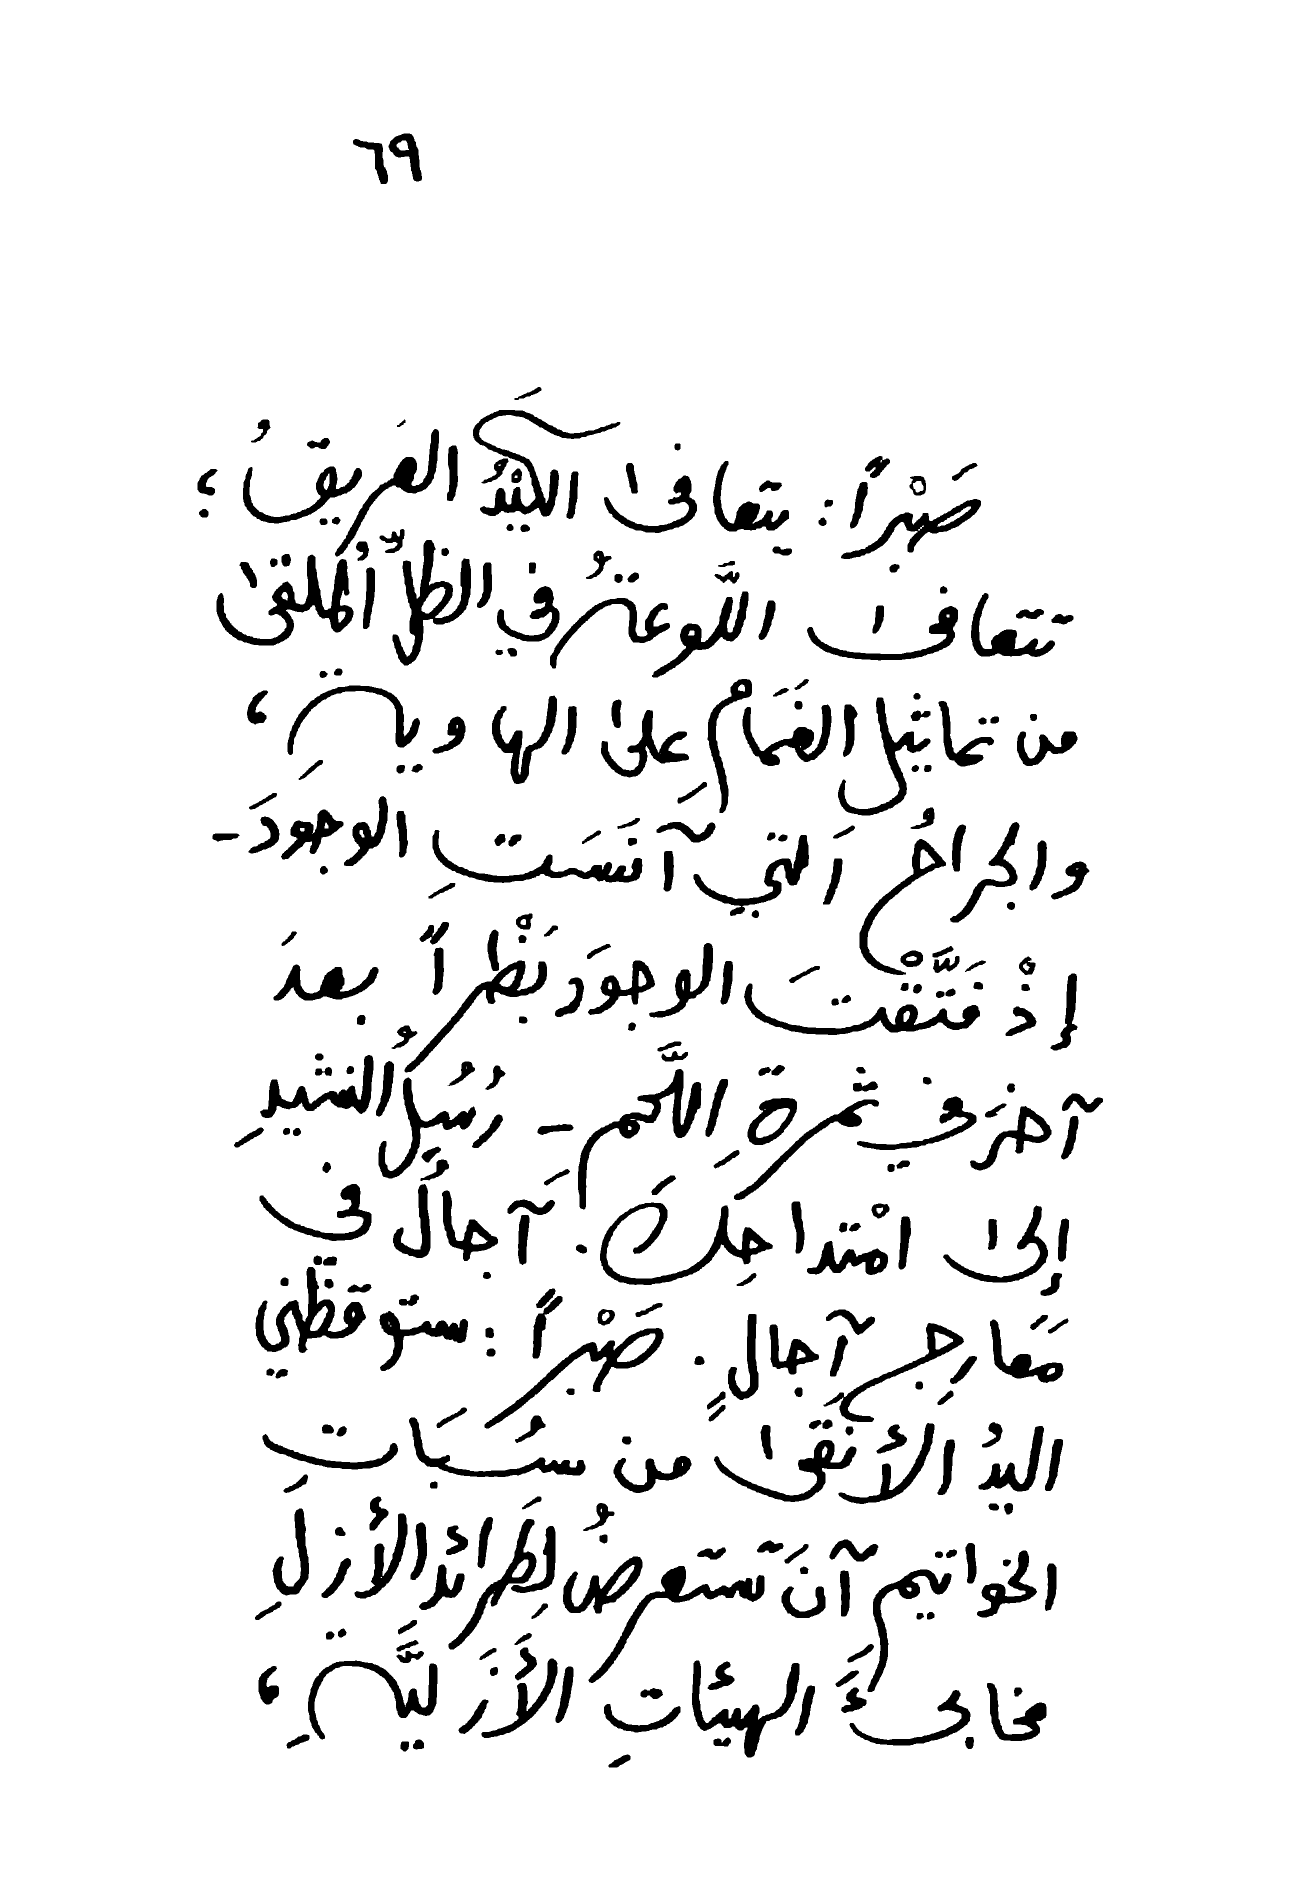 ٦٩
صَبْراً : يتعافى الكَيْدُ العَريقُ ؛
تتعافى اللَّوعةُ في الظلِّ ٱلملقىٰ
من تماثيل الغَمَامِ على الهاوية ،
والجراحُ ٱلتي آنَسَتِ الوجودَ -
إذْ فَتَّقْتَ الوجودَ بَظْراً بعدَ
آخرَ في ثمرةِ اللَّحم - رُسُلُ النشيدِ
إلى امْتداحِكَ . آجالٌ في
مَعَارجِ آجالٍ . صَبْراً : ستوقظني
اليدُ الأنقَى من سُبَاتِ
الخواتيم آنَ تستعرضُ لِطَرائدِ الأزلِ
مخابىءَ الهيئاتِ الأَزَليَّةِ ،